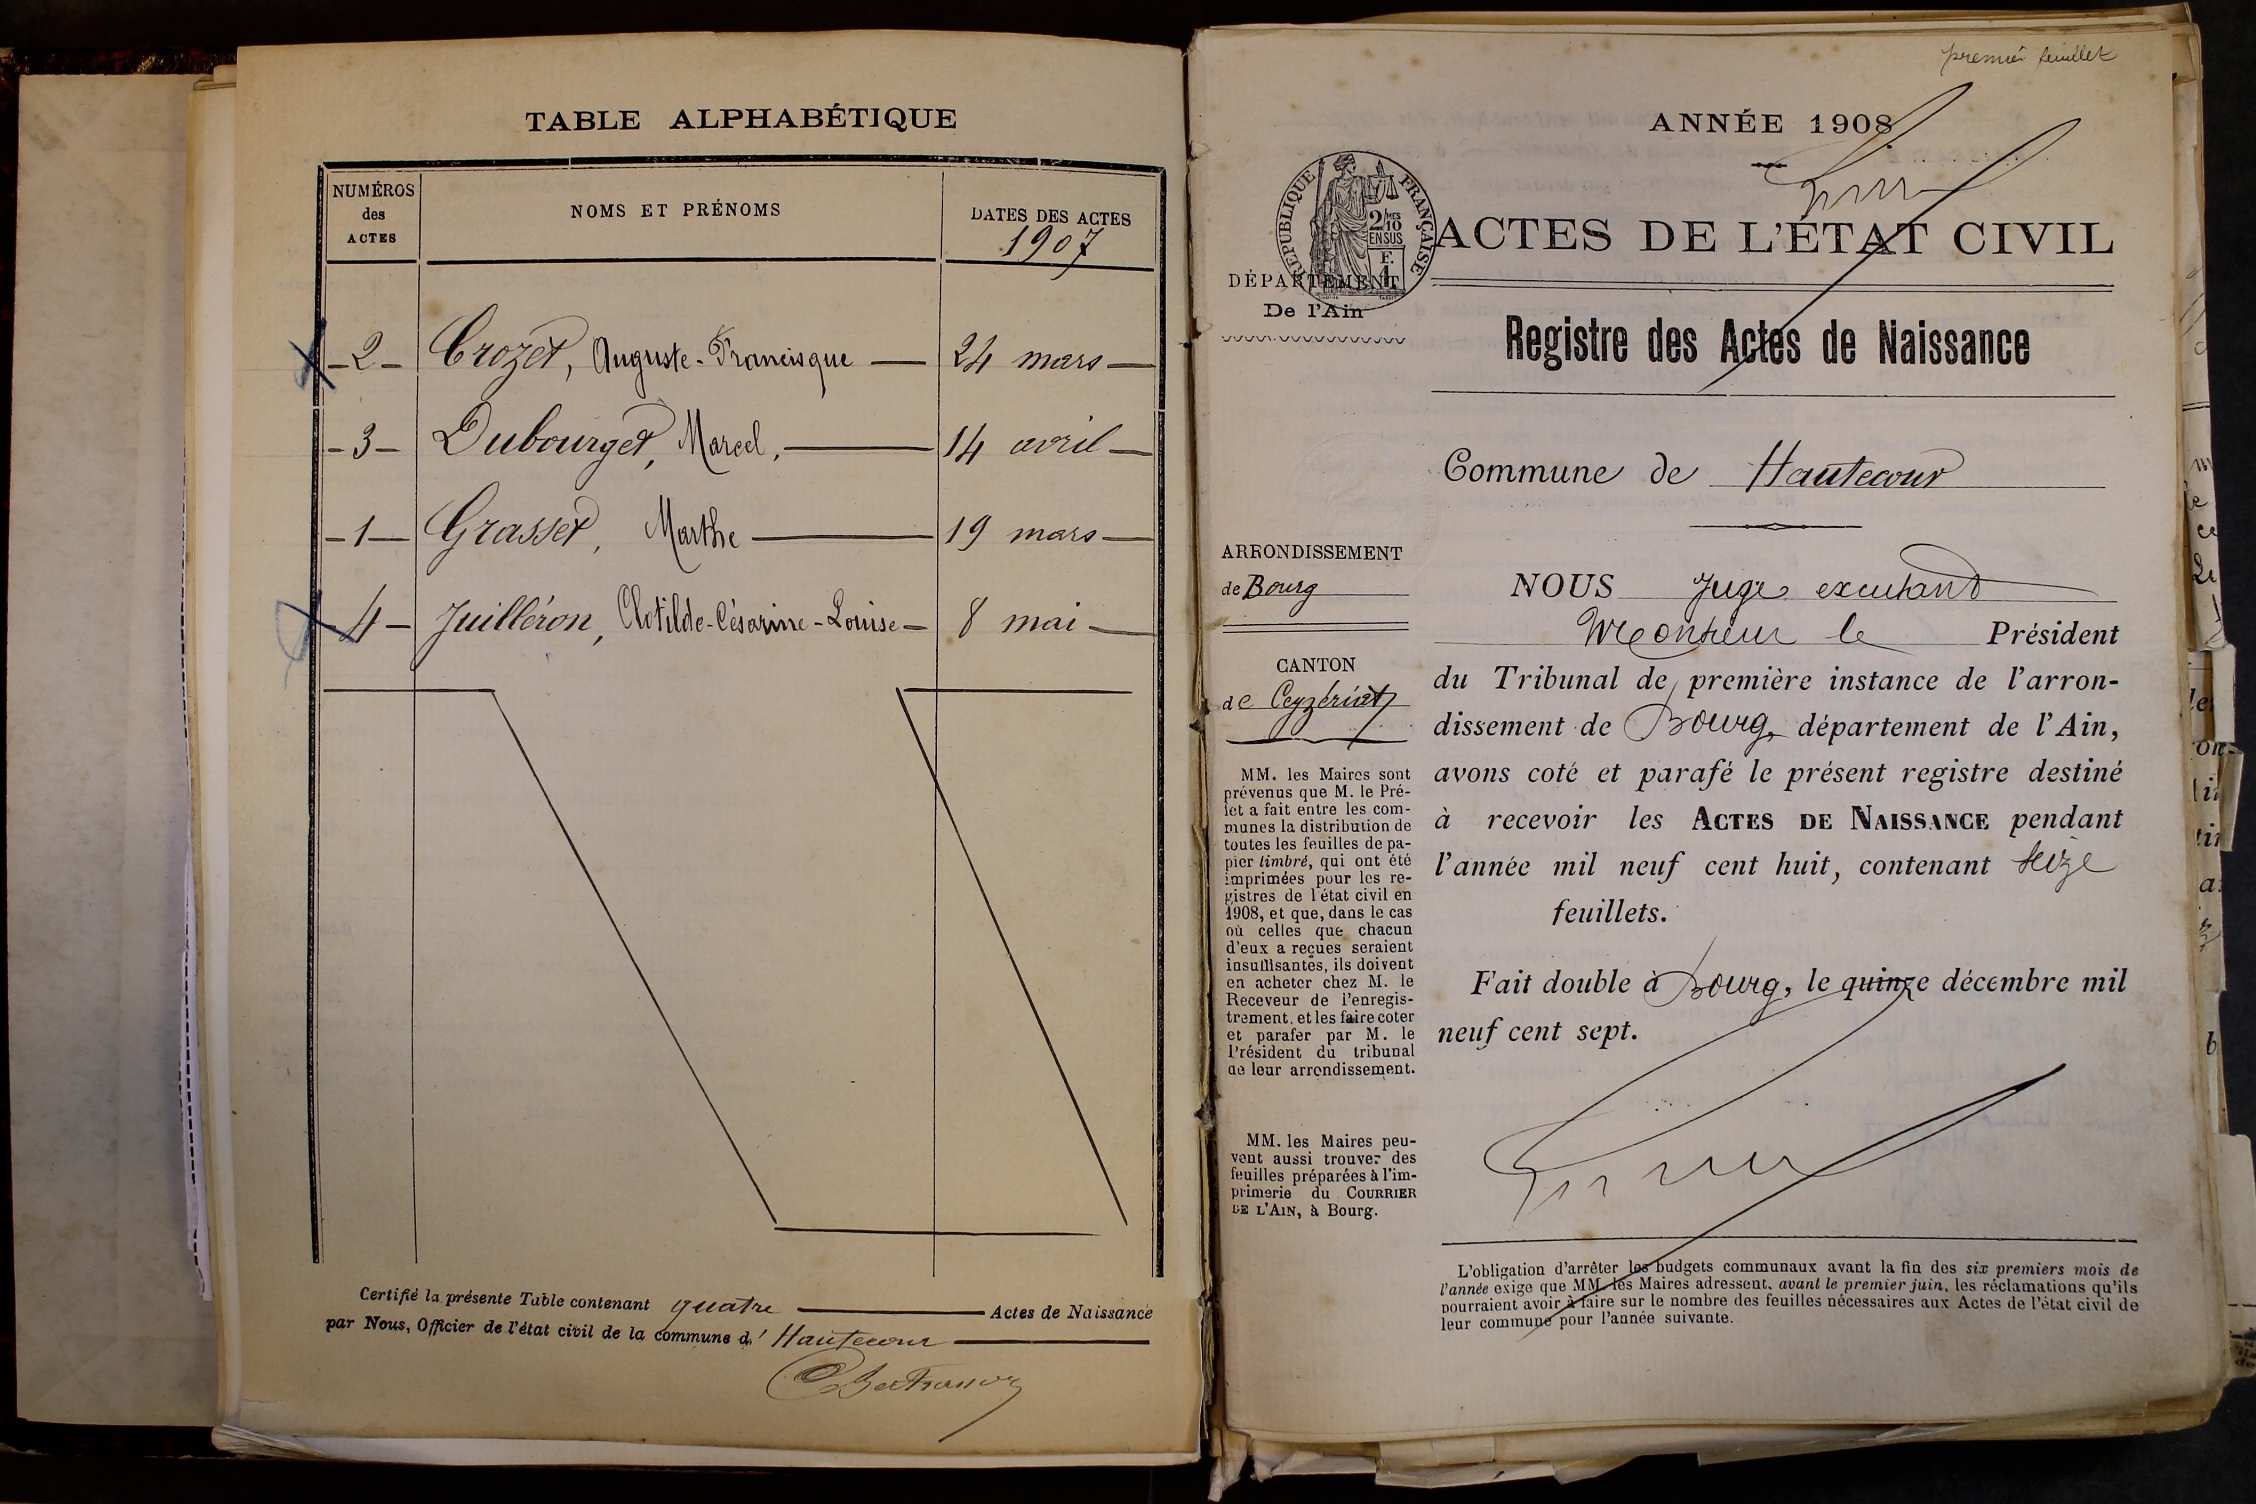 TABLE ALPHABÉTIQUE
NUMÉROS
des
ACTES
NOMS ET PRÉNOMS
DATES DES ACTES
1907
- 2 - Crozet, Auguste-Francisque — 24 mars —
- 3 - Dubourget, Marcel, — 14 avril —
- 1 - Grasset, Marthe — 19 mars —
4 - Juilléron, Clotilde-Césarine-Louise - 8 mai —
Certifié la présente Table contenant quatre — Actes de Naissance
par Nous, Officier de l'état civil de la commune d' Hautecour —
premier feuillet
ANNÉE 1908
RÉPUBLIQUE FRANÇAISE
2/10
EN SUS
F.
1
ACTES DE L'ÉTAT CIVIL
DÉPARTEMENT
De l'Ain
Registre des Actes de Naissance
Commune de Hautecour
ARRONDISSEMENT
de Bourg
CANTON
de Ceyzériat
MM. les Maires sont
prévenus que M. le Pré-
fet a fait entre les com-
munes la distribution de
toutes les feuilles de pa-
pier timbré, qui ont été
imprimées pour les re-
gistres de l'état civil en
1908, et que, dans le cas
où celles que chacun
d'eux a reçues seraient
insuffisantes, ils doivent
en acheter chez M. le
Receveur de l'enregis-
trement, et les faire coter
et parafer par M. le
Président du tribunal
de leur arrondissement.
MM. les Maires peu-
vent aussi trouver des
feuilles préparées à l'im-
primerie du COURRIER
DE L'AIN, à Bourg.
NOUS Juge
Monsieur le Président
du Tribunal de première instance de l'arron-
dissement de Bourg, département de l'Ain,
avons coté et parafé le présent registre destiné
à recevoir les ACTES DE NAISSANCE pendant
l'année mil neuf cent huit, contenant seize
feuillets.
Fait double à Bourg, le quinze décembre mil
neuf cent sept.
L'obligation d'arrêter les budgets communaux avant la fin des six premiers mois de
l'année exige que MM. les Maires adressent, avant le premier juin, les réclamations qu'ils
pourraient avoir à faire sur le nombre des feuilles nécessaires aux Actes de l'état civil de
leur commune pour l'année suivante.